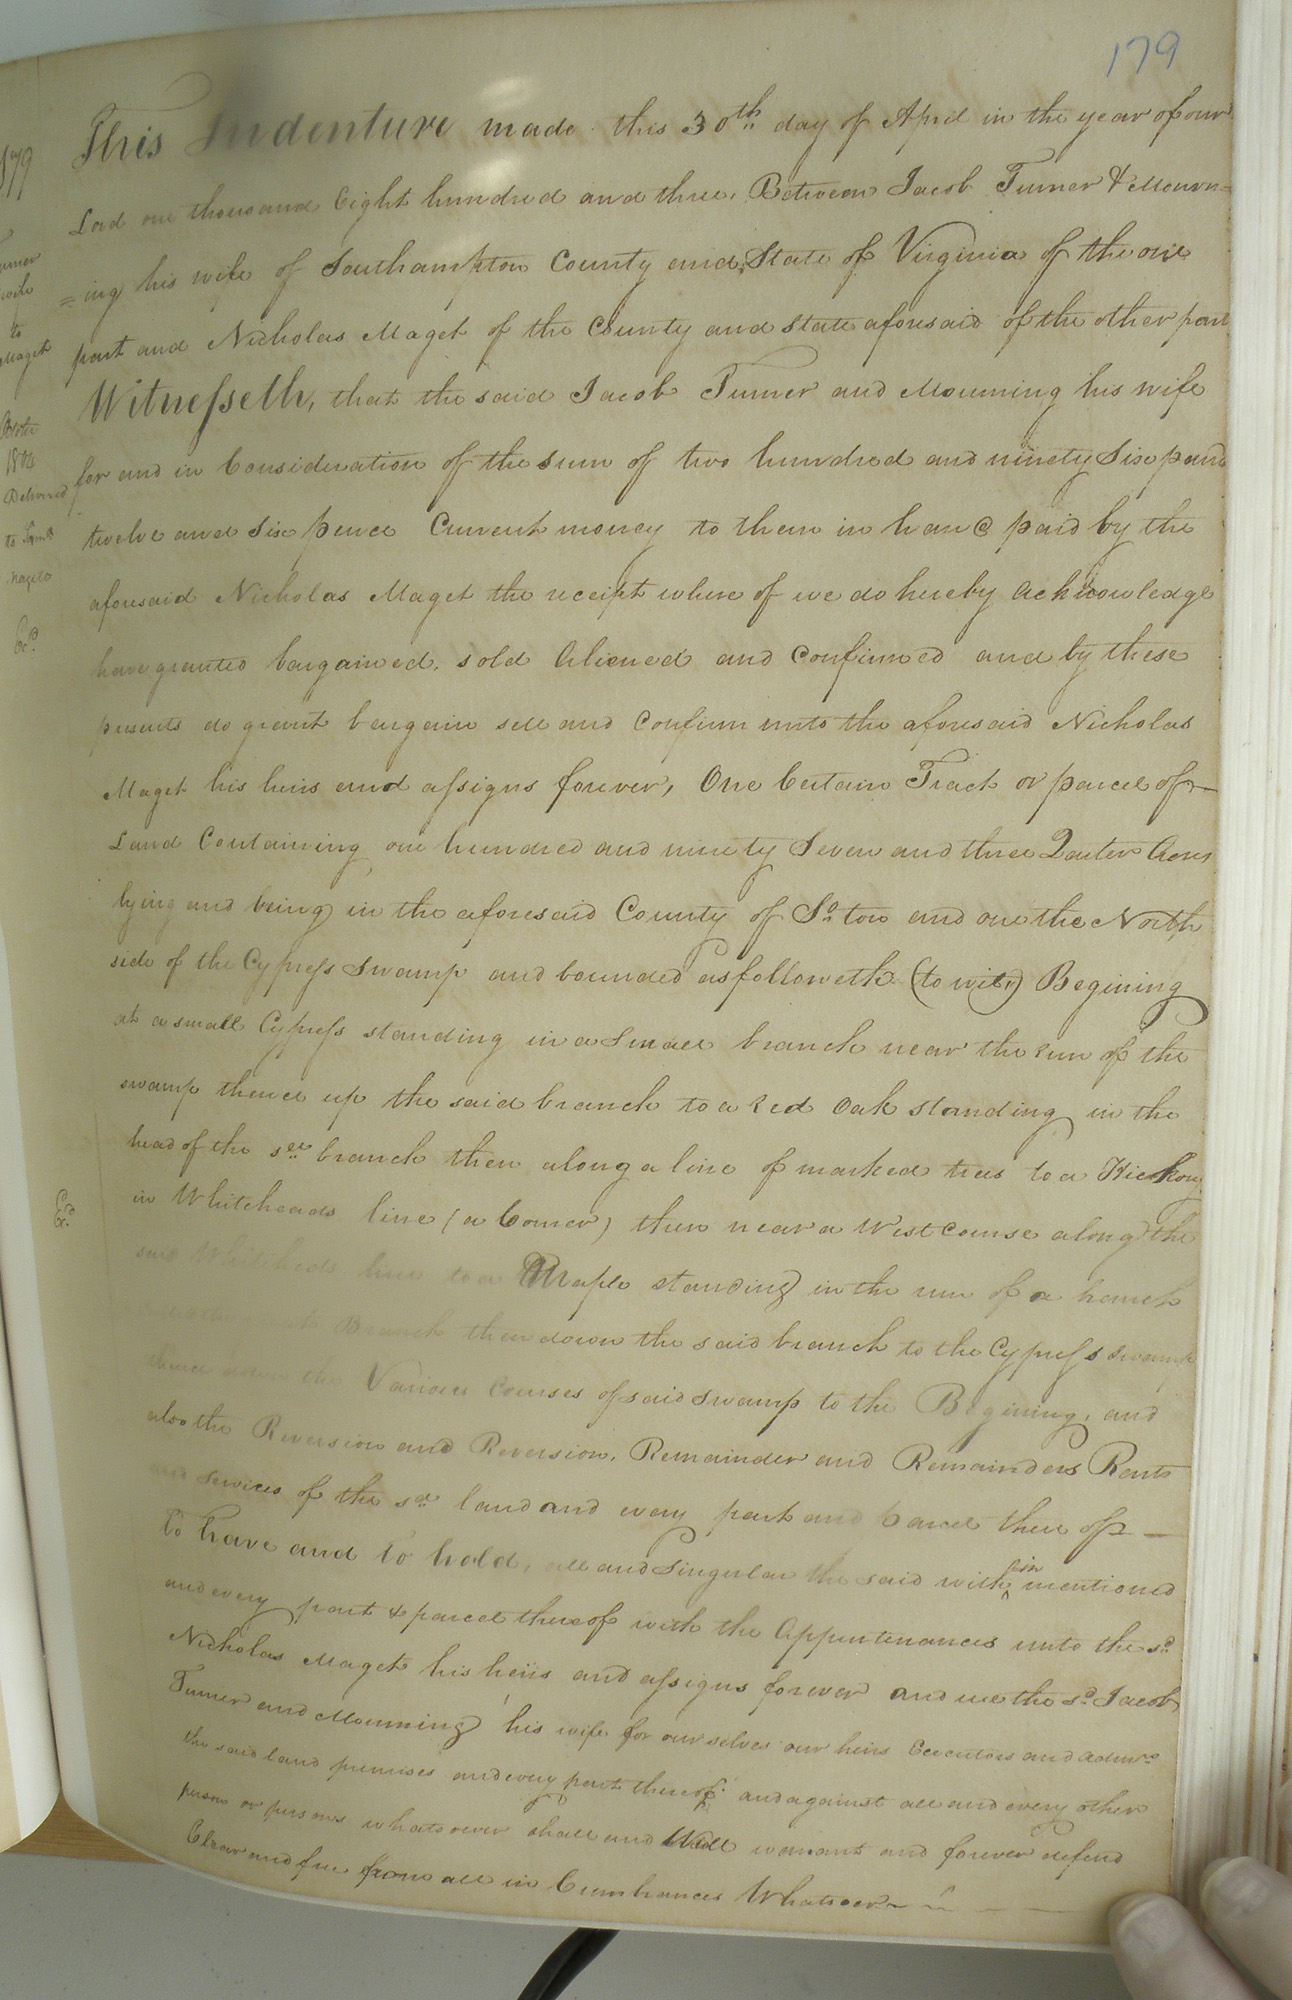 179
This Indenture made this 30th day of April in the year of our
Lord one thousand Eight hundred and three, Between Jacob Turner & Mourn=
=ing his wife of Southampton County and State of Virginia of the one
part and Nicholas Maget of the County and State aforesaid of the other part
Witnesseth, that the said Jacob Turner and Mourning his wife
for and in Consideration of the sum of two hundred and ninety Six pound
twelve and Six pence Current money to them in hand paid by the
aforesaid Nicholas Maget the receipt where of we do hereby acknowledge
have granted bargained, sold Aliened and Confirmed and by these
presents do grant bargain sell and Confirm unto the aforesaid Nicholas
Maget his heirs and assigns forever, One Certain Tract or parcel of
Land Containing one hundred and ninety Seven and three Quarter Acres
lying and being in the aforesaid County of So. ton and on the North
side of the Cypress Swamp and bounded as followeth (to wit,) Begining
at a small Cypress standing in a Small branch near the run of the
swamp thence up the said branch to a red Oak standing in the
head of the sd. branch then along a line of marked trees to a Hickory
in Whiteheads line (a Corner) then near a West course along the
said Whiteheads line to a Maple standing in the run of a branch
Branch then down the said branch to the Cypress swamp
thence down the Various Courses of said swamp to the Begining, and
also the Reversion and Reversion, Remainder and Remainders Rents
and Services of the sd. land and every part and parcel there of
To have and to hold, all and Singular the said within mentioned
and every part & parcel thereof with the Appurtenances unto the sd.
Nicholas Maget his heirs and assigns forever and we the sd. Jacob
Turner and Mourning his wife for our selves our heirs Executors and admrs.
the said land premises and every part thereof and against all and every other
person or persons whatsoever shall and Will warrant and forever defend
Clear and free from all in Cumbrances Whatsoever
179
to
Maget
1804
Delivered
Exd.
Exd.